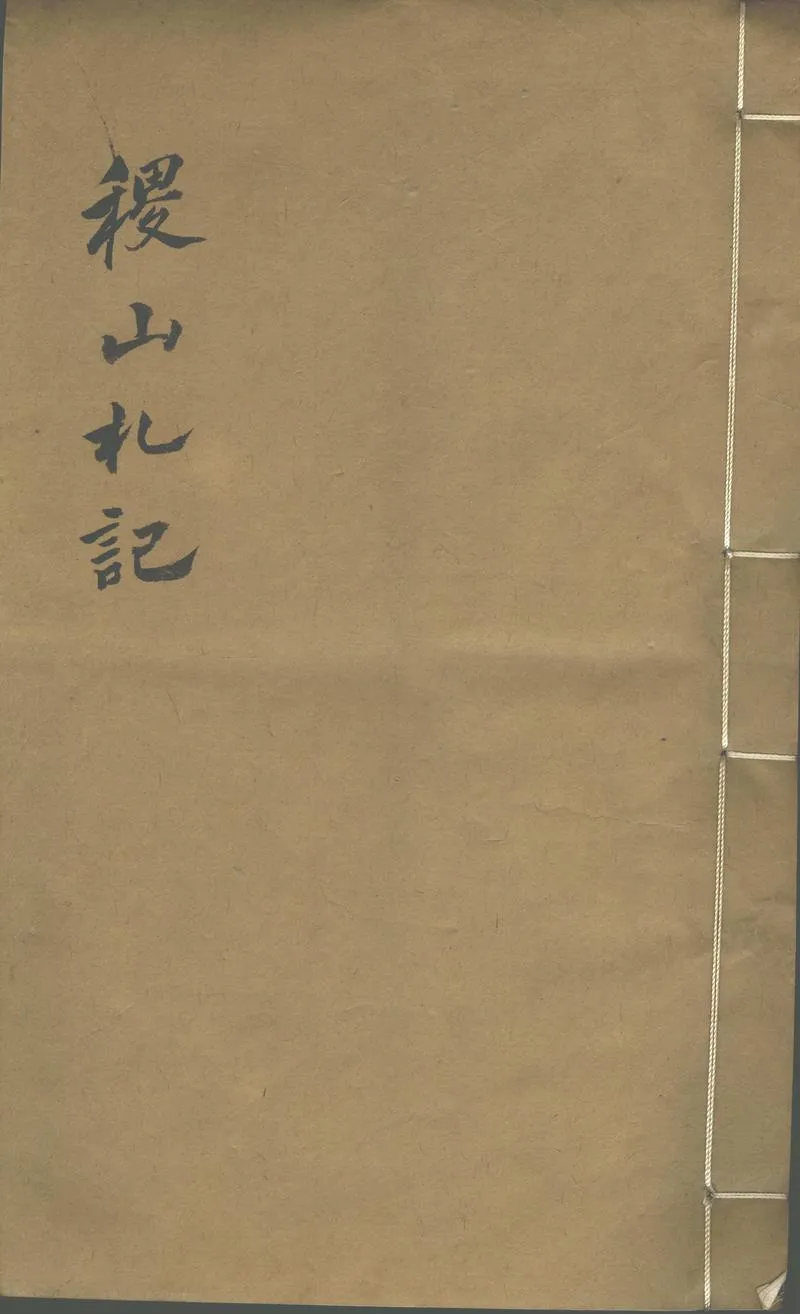 稷山札記